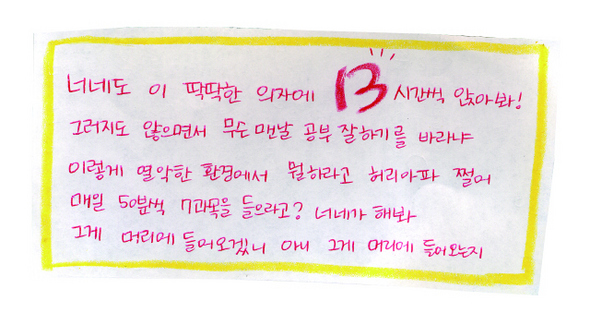 너네도 이 딱딱한 의자에 13시간씩 앉아봐!
그러지도 않으면서 무슨 맨날 공부 잘하기를 바라냐
이렇게 열악한 환경에서 뭘하라고 허리아파 쩔어
매일 50분씩 7과목을 들으라고? 너네가 해봐
그게 머리에 들어오겠니 아니 그게 머리에 들어오는지